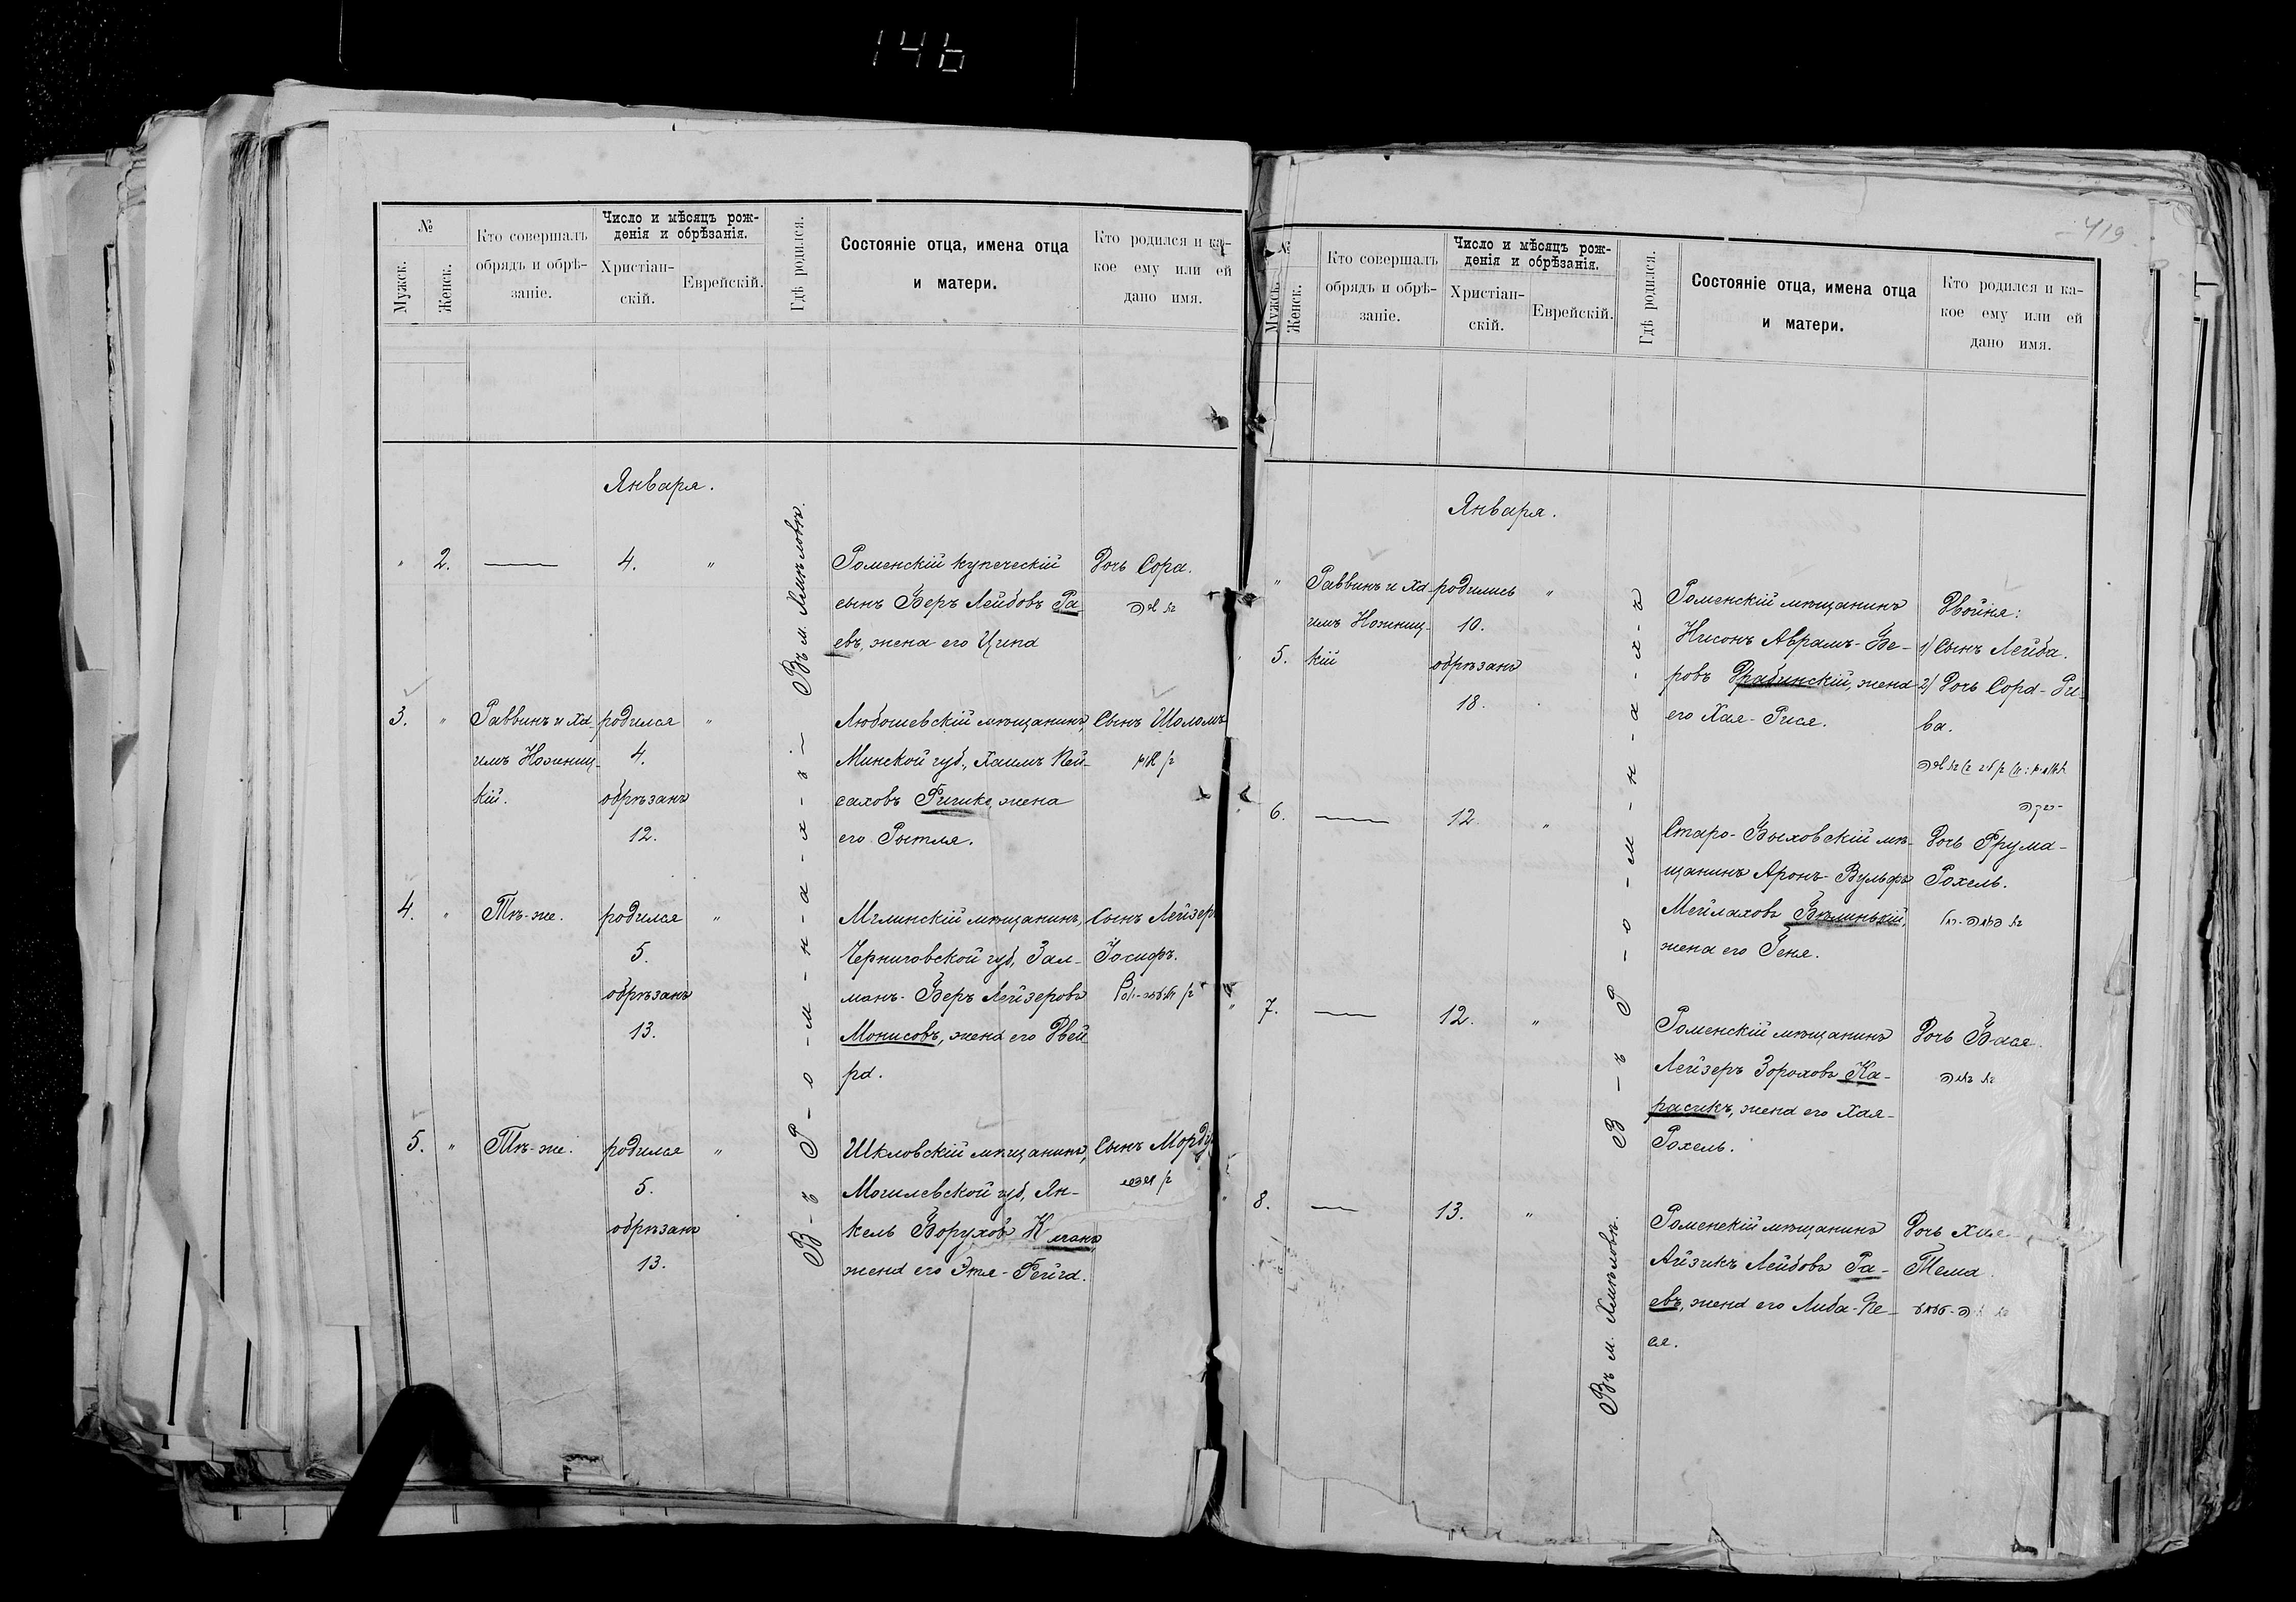 146
№
Мужск.
Женск.
Кто совершалъ
обрядъ и обрѣ-
заніе.
Число и мѣсяцъ рож-
денія и обрѣзанія.
Христіан-
скій.
Еврейскій.
Гдѣ родился.
Состояніе отца, имена отца
и матери.
Кто родился и ка-
кое ему или ей
дано имя.
Января.
" 2. — 4. "
Роменскій купеческій
сынъ Беръ Лейбовъ Ра-
евъ, жена его Ципа
Дочь Сора.
3. "
Раввинъ и Ха-
имъ Ножниц-
кій.
родился "
4.
обрѣзанъ
12.
Любошевскій мѣщанинъ,
Минской губ., Хаимъ Пей-
саховъ жена
его Рытля.
Сынъ Шоломъ
4. "
Тѣ-же.
родился "
5.
обрѣзанъ
13.
Мглинскій мѣщанинъ,
Черниговской губ, Зал-
манъ-Беръ Лейзеровъ
Монисовъ, жена его Двей-
ра.
Сынъ Лейзеръ
Іосифъ.
5. "
Тѣ-же.
родился "
5.
обрѣзанъ
13.
Шкловскій мѣщанинъ,
Могилевской губ, Ян-
кель Боруховъ
жена его Этя-Рейза.
Сынъ Морду
Въ м. Хмѣловѣ.
В-ъ Р-о-м-н-а-х-ъ
419
№
Мужск.
Женск.
Кто совершалъ
обрядъ и обрѣ-
заніе.
Число и мѣсяцъ рож-
денія и обрѣзанія.
Христіан-
скій.
Еврейскій.
Гдѣ родился.
Состояніе отца, имена отца
и матери.
Кто родился и ка-
кое ему или ей
дано имя.
Января.
"
5.
Раввинъ и Ха-
имъ Ножниц-
кій
родились "
10.
обрѣзанъ
18.
Роменскій мѣщанинъ
Нисонъ Аврамъ-Бе-
ровъ Драбинскій, жена
его Хая-Рися.
Двойня:
1) Сынъ Лейба.
2) Дочь Сора-Ри-
ва.
6. — 12. "
Старо-Быховскій мѣ-
щанинъ Аронъ-Вульфъ
Мейлаховъ Бѣлинькій,
жена его Геня.
Дочь Фрума-
Рохель.
" 7. — 12. "
Роменскій мѣщанинъ
Лейзеръ Зороховъ Ка-
расикъ, жена его Хая-
Рохель.
Дочь Бася.
" 8. — 13. "
Роменскій мѣщанинъ
Айзикъ Лейбовъ Ра-
евъ, жена его Либа-Пе-
ся.
Дочь Хая-
Тема
В-ъ Р-о-м-н-а-х-ъ
Въ м. Хмѣловѣ.